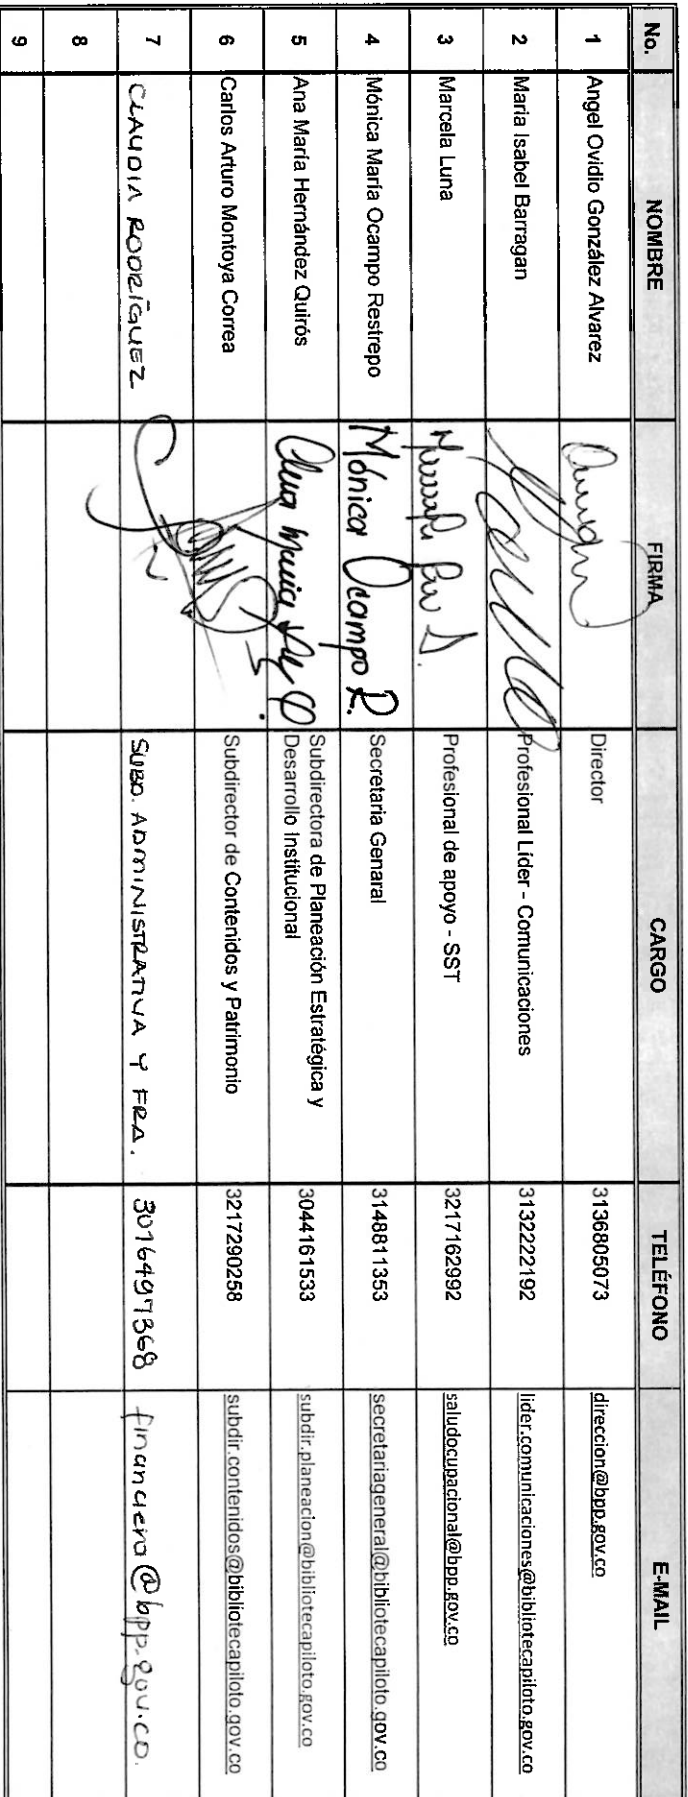 No. NOMBRE FIRMA CARGO TELÉFONO E-MAIL
1 Angel Ovidio González Alvarez Director 3136805073 direccion@bpp.gov.co
2 Maria Isabel Barragan Profesional Líder - Comunicaciones 3132222192 lider.comunicaciones@bibliotecapiloto.gov.co
3 Marcela Luna Profesional de apoyo - SST 3217162992 saludocupacional@bpp.gov.co
4 Mónica María Ocampo Restrepo Mónica Ocampo R. Secretaria Genaral 3148811353 secretariageneral@bibliotecapiloto.gov.co
5 Ana María Hernández Quirós Ana María Subdirectora de Planeación Estratégica y
Desarrollo Institucional 3044161533 subdir.planeacion@bibliotecapiloto.gov.co
6 Carlos Arturo Montoya Correa Subdirector de Contenidos y Patrimonio 3217290258 subdir.contenidos@bibliotecapiloto.gov.co
7 CLAUDIA RODRÍGUEZ SUBD. ADMINISTRATIVA Y FRA. 3016497368 financiera@bpp.gov.co.
8
9